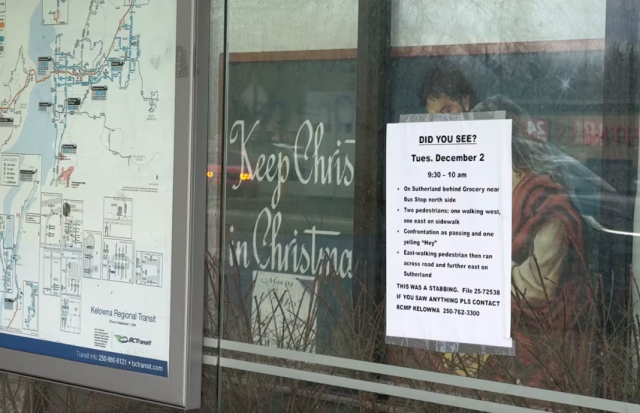 Keep Chris
in Christma
DID YOU SEE?
Tues. December 2
9:30 – 10 am
• On Sutherland behind Grocery near
Bus Stop north side
• Two pedestrians: one walking west,
one east on sidewalk
• Confrontation as passing and one
yelling "Hey"
• East-walking pedestrian then ran
across road and further east on
Sutherland
THIS WAS A STABBING. File 25-72538
IF YOU SAW ANYTHING PLS CONTACT
RCMP KELOWNA 250-762-3300
Kelowna Regional Transit
BC Transit
Transit Info 250-860-8121 • bctransit.com
24